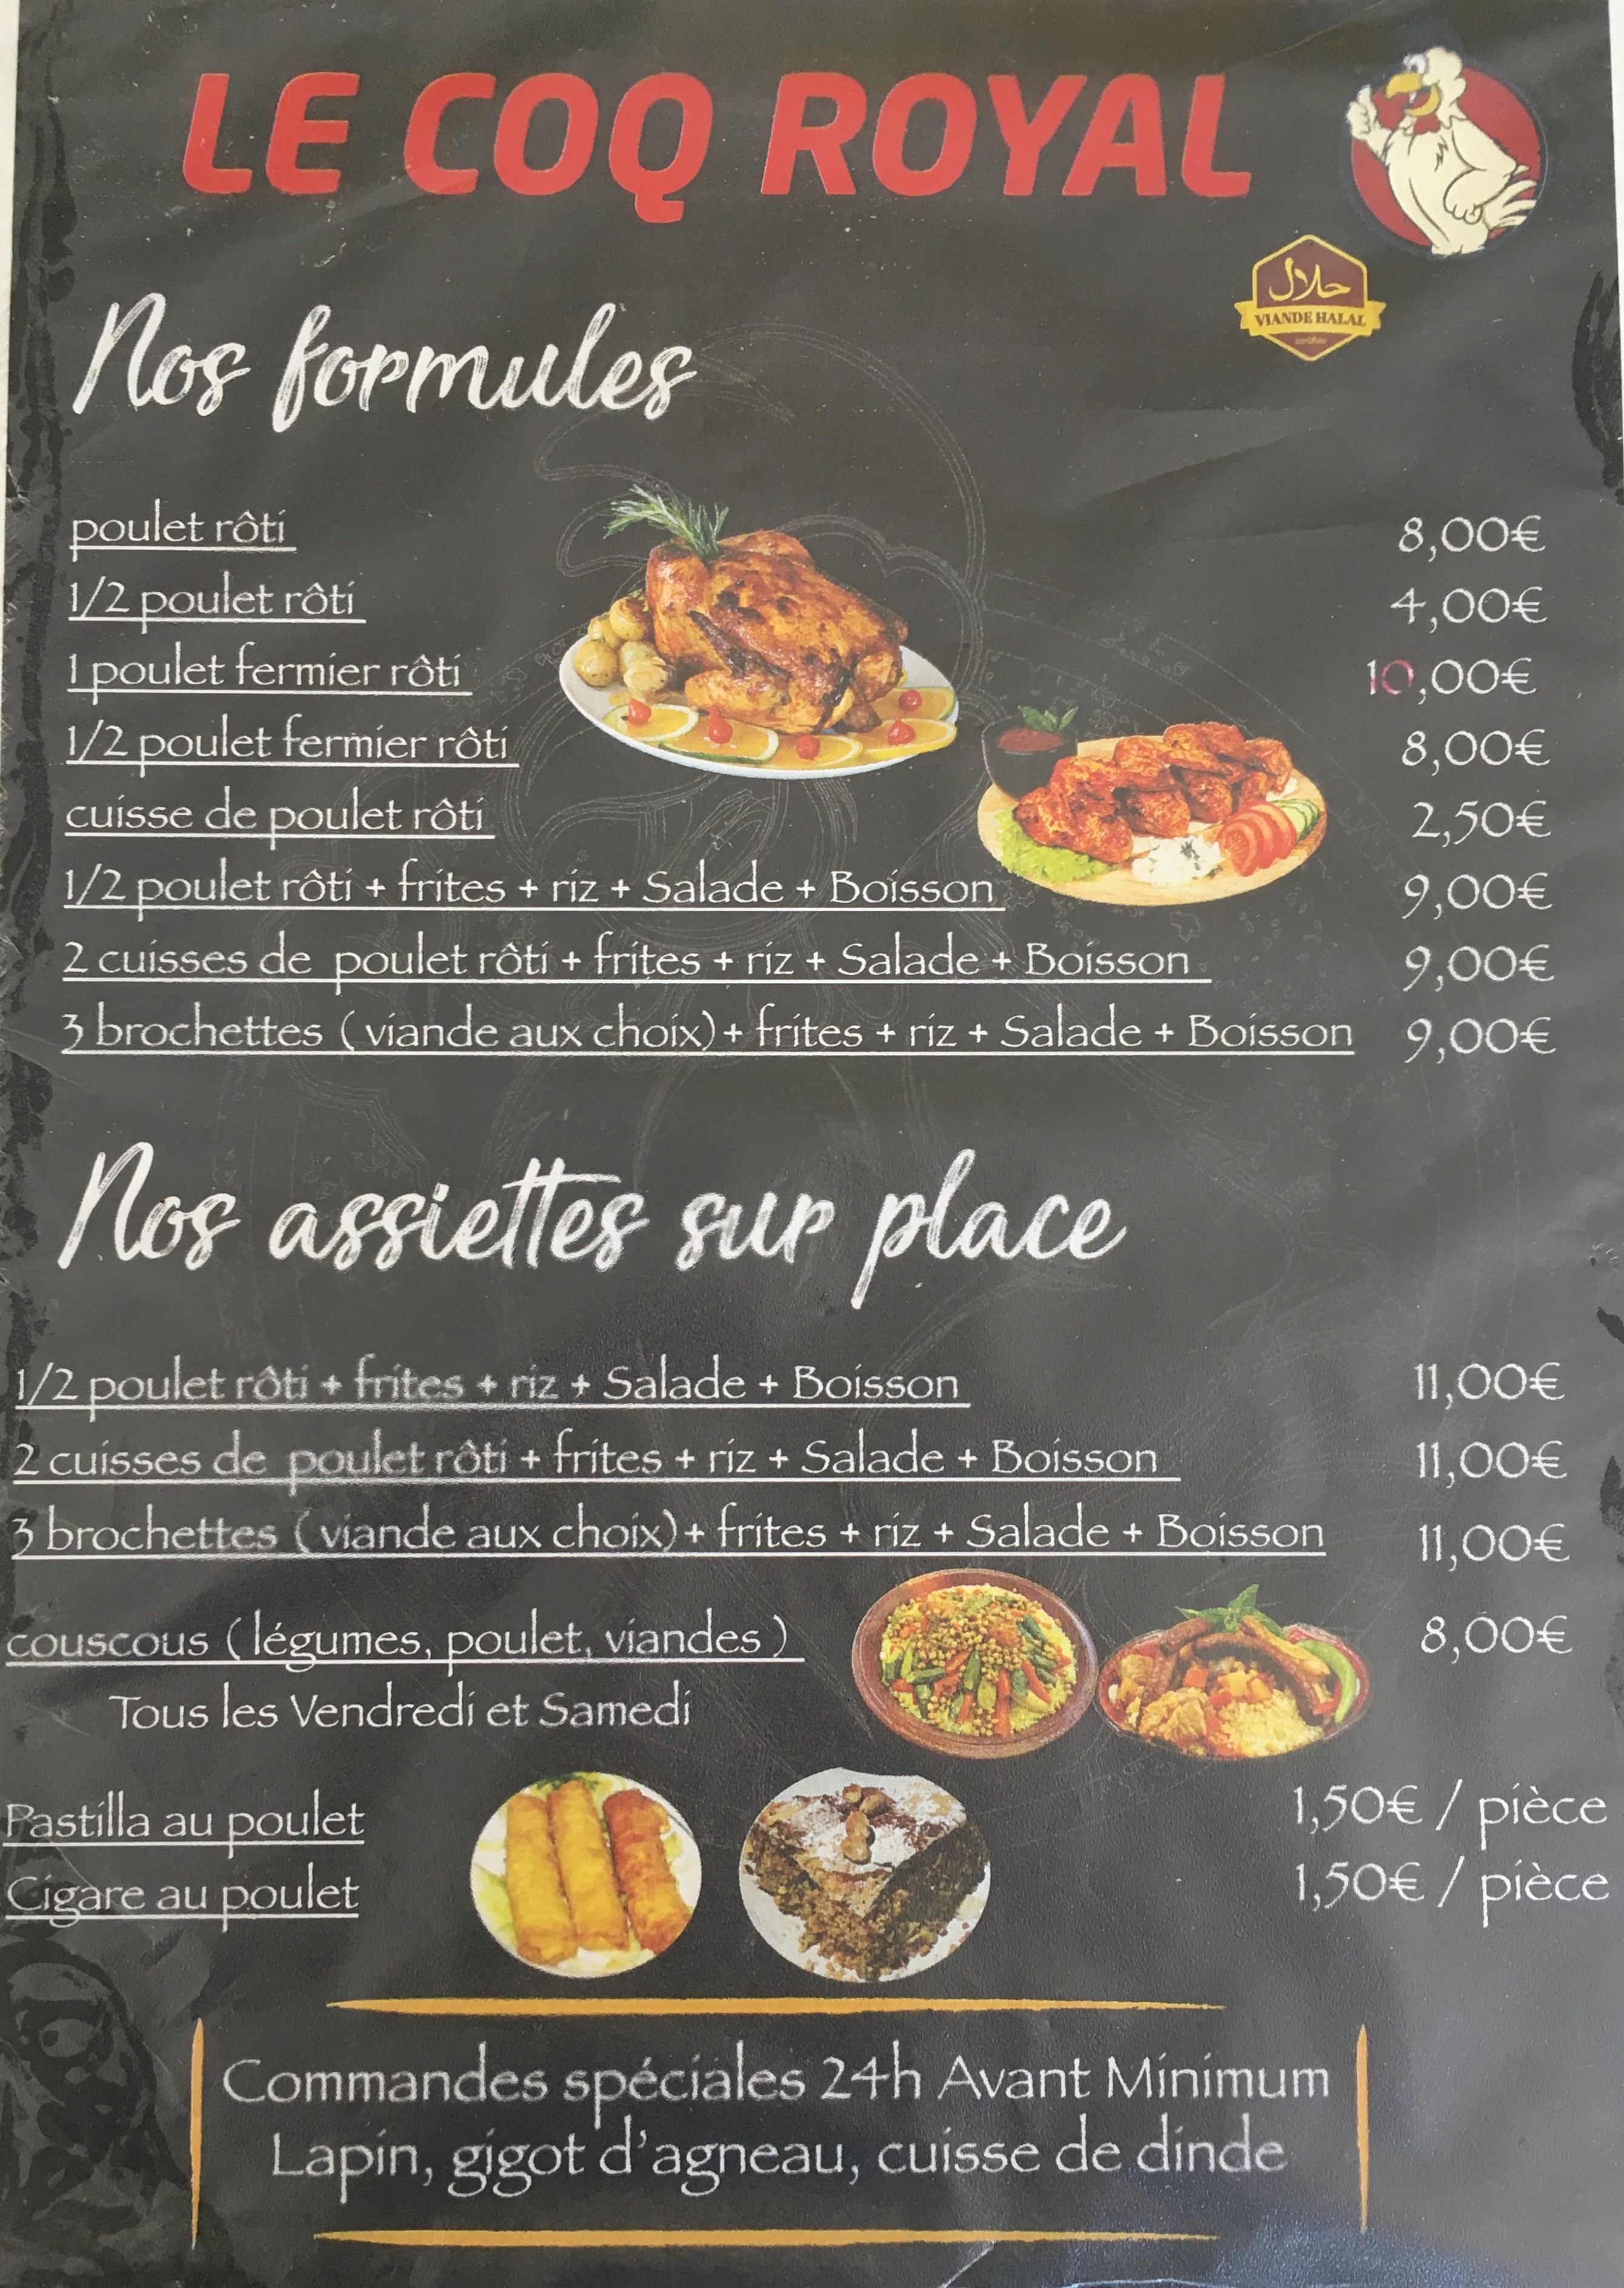 LE COQ ROYAL
حلال
VIANDE HALAL
certifiée
Nos formules
poulet rôti 8,00€
1/2 poulet rôti 4,00€
1 poulet fermier rôti 10,00€
1/2 poulet fermier rôti 8,00€
cuisse de poulet rôti 2,50€
1/2 poulet rôti + frites + riz + Salade + Boisson 9,00€
2 cuisses de poulet rôti + frites + riz + Salade + Boisson 9,00€
3 brochettes ( viande aux choix) + frites + riz + Salade + Boisson 9,00€
Nos assiettes sur place
1/2 poulet rôti + frites + riz + Salade + Boisson 11,00€
2 cuisses de poulet rôti + frites + riz + Salade + Boisson 11,00€
3 brochettes ( viande aux choix) + frites + riz + Salade + Boisson 11,00€
couscous ( légumes, poulet, viandes ) 8,00€
Tous les Vendredi et Samedi
Pastilla au poulet 1,50€ / pièce
Cigare au poulet 1,50€ / pièce
Commandes spéciales 24h Avant Minimum
Lapin, gigot d'agneau, cuisse de dinde